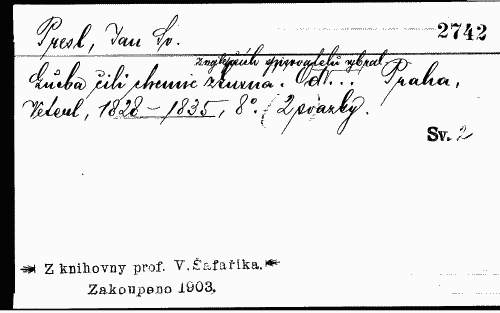 2742
Presl, Jan Sv.
z nejlepších spisovatelů vybral
Lučba čili chemie zkusná. Od ... Praha,
Veterl, 1828-1835, 8° (2 svazky.
Sv. 2
Z knihovny prof. V. Šafaříka.
Zakoupeno 1903.